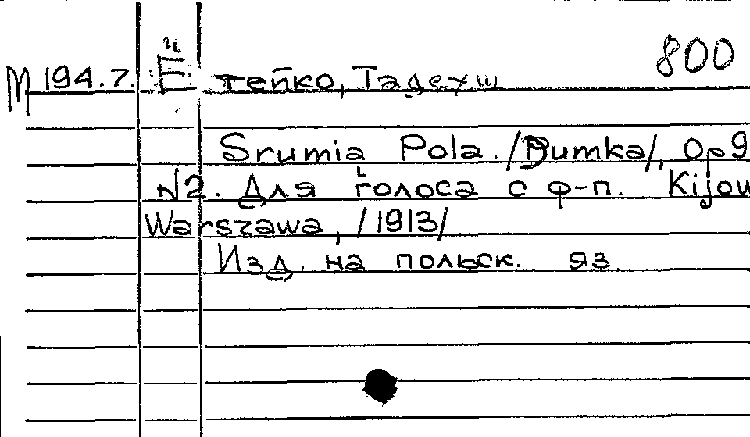 800
М 194.7. Ё тейко, Тадеуш
Srumia Pola. /Dumka/, Op9
N2. Для голоса с ф-п. Kijow
Warszawa, /1913/
Изд. на польск. яз.